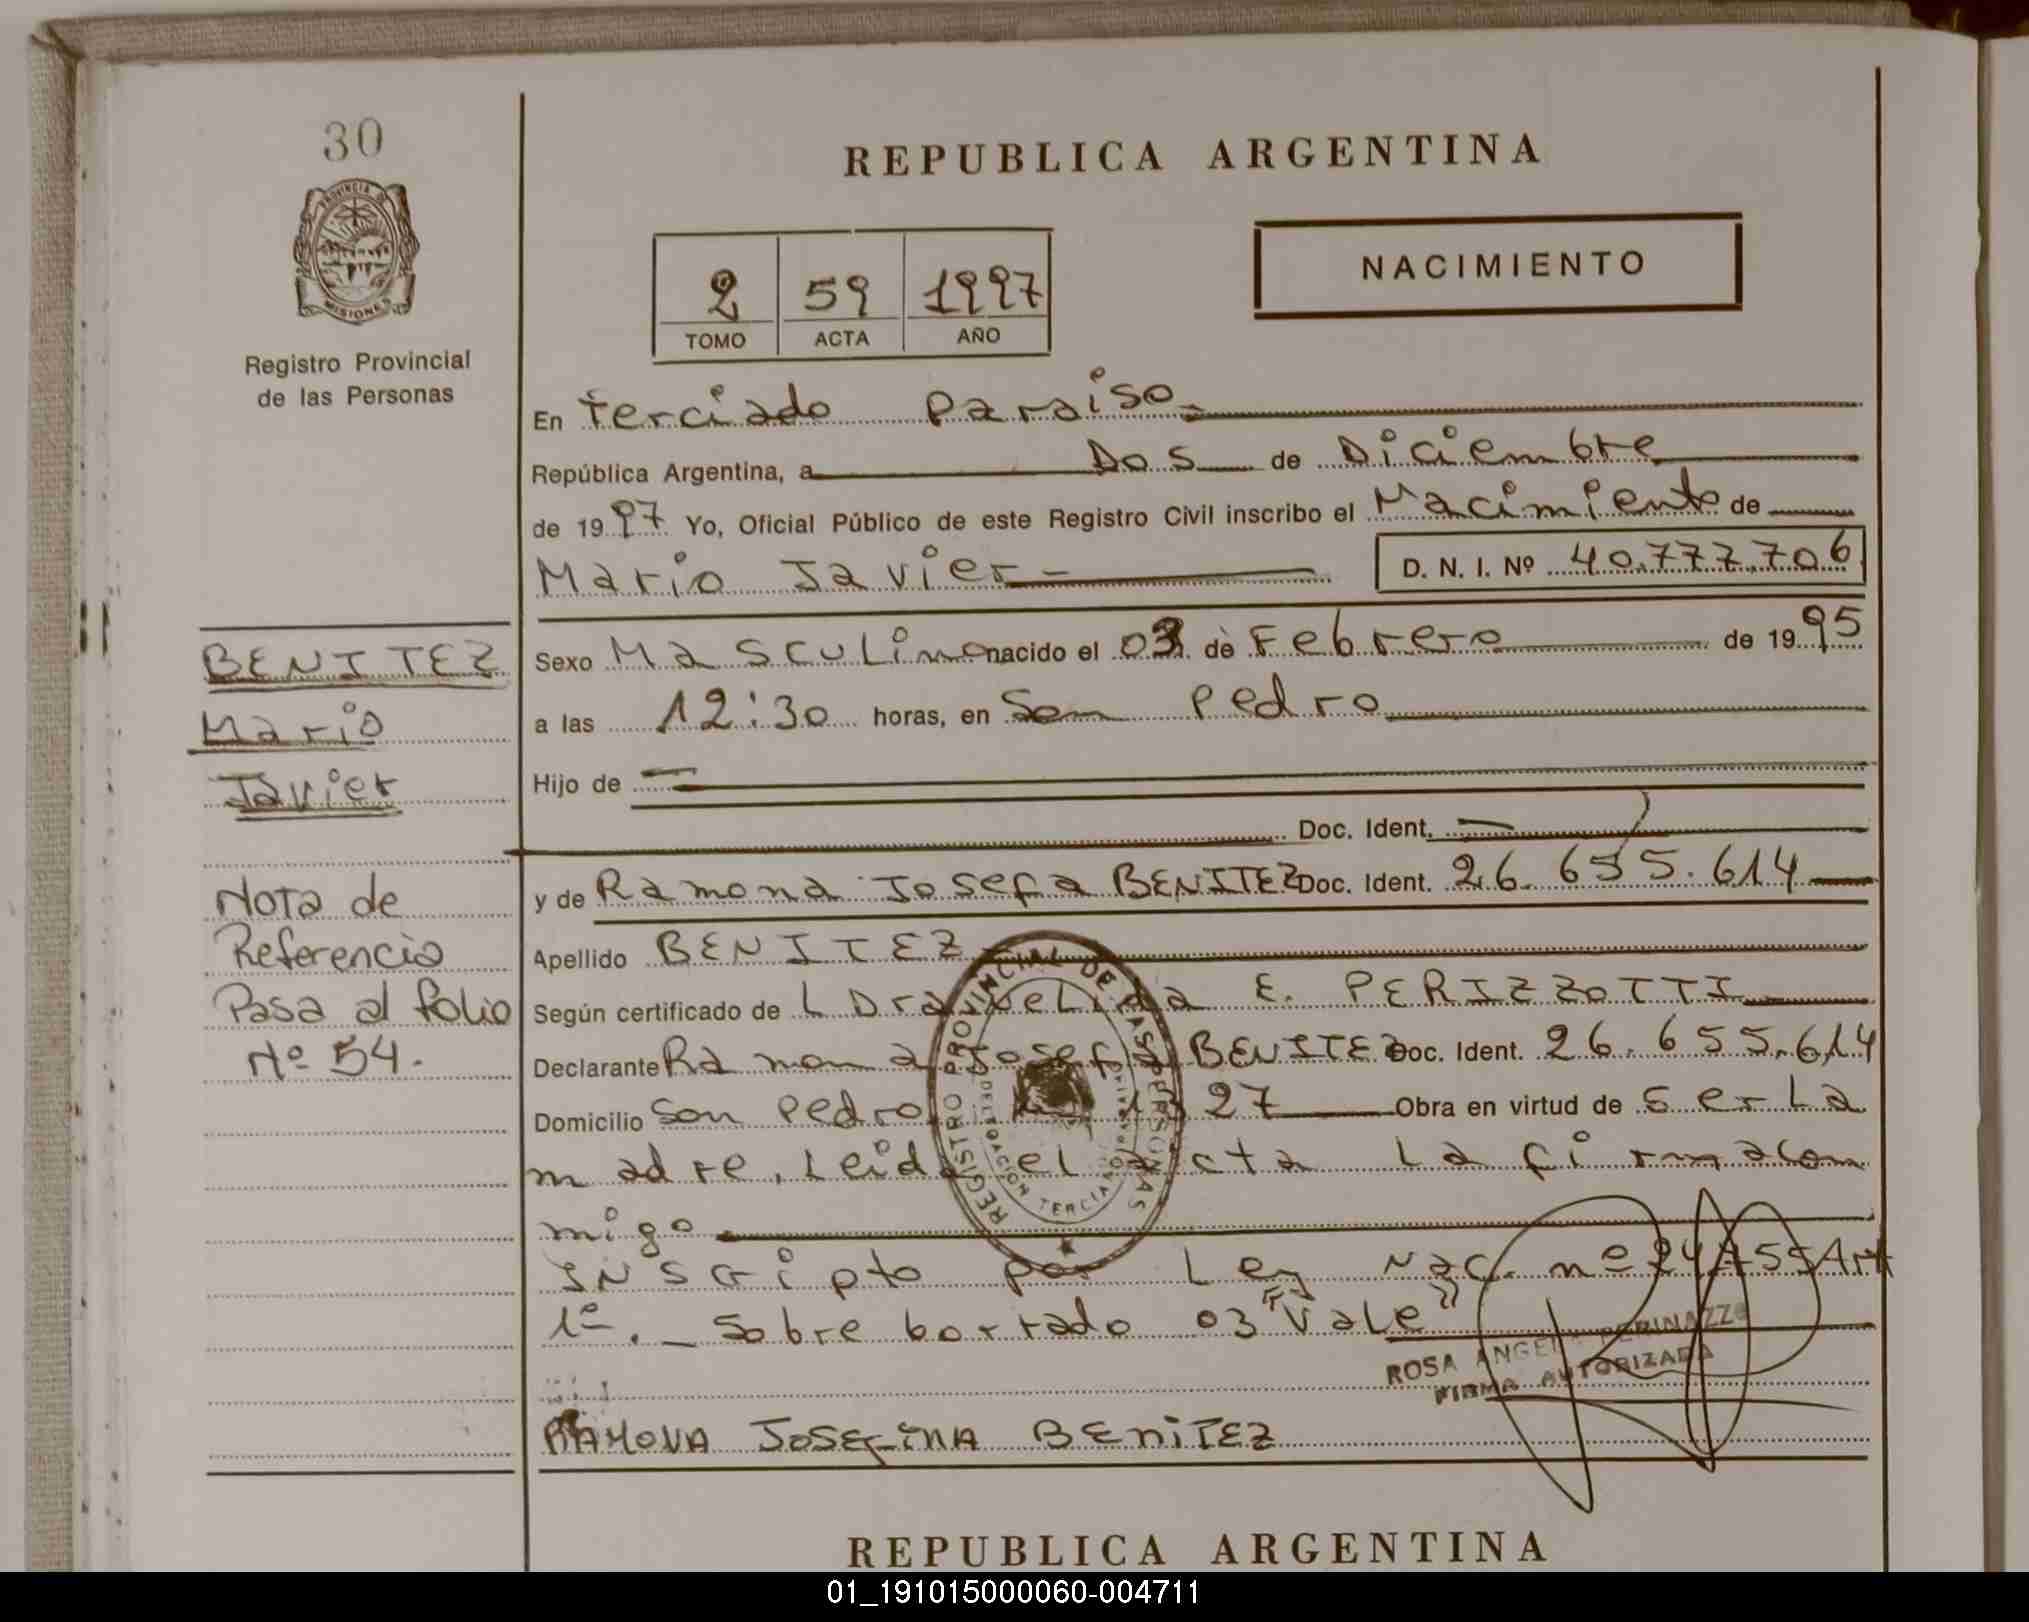 30
PROVINCIA DE
MISIONES
Registro Provincial
de las Personas
REPUBLICA ARGENTINA
2 59 1997
TOMO ACTA AÑO
NACIMIENTO
En Terciado Paraiso
República Argentina, a Dos de Diciembre
de 1997 Yo, Oficial Público de este Registro Civil inscribo el Nacimiento de
Mario Javier
D. N. I. Nº 40.777.706
Sexo Masculino nacido el 03 de Febrero de 1995
a las 12:30 horas, en San Pedro
Hijo de
Doc. Ident.
y de Ramona Josefa BENITEZ Doc. Ident. 26.655.614
Apellido BENITEZ
Según certificado de L Dra E. PERIZZOTTI
Declarante Ramona Josefa BENITEZ Doc. Ident. 26.655.614
Domicilio San Pedro 27 Obra en virtud de ser La
madre, Leida el acta La firma con
migo
Inscripto por Ley Nac. nº 24755 Art
1º. Sobre borrado 03 "Vale"
ROSA PERINAZZO
FIRMA AUTORIZADA
RAMONA JOSEFINA BENITEZ
BENITEZ
Mario
Javier
Nota de
Referencia
Pasa al folio
Nº 54.
REGISTRO PROVINCIAL DE LAS PERSONAS
DELEGACION TERCIADO
REPUBLICA ARGENTINA
01_191015000060-004711